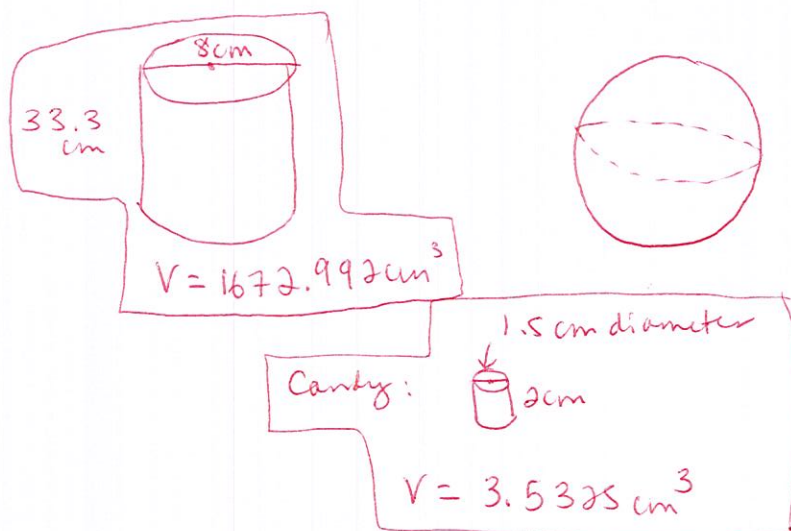 8cm
33.3
cm
V = 1672.992cm³
1.5 cm diameter
Candy:
2cm
V = 3.5325 cm³